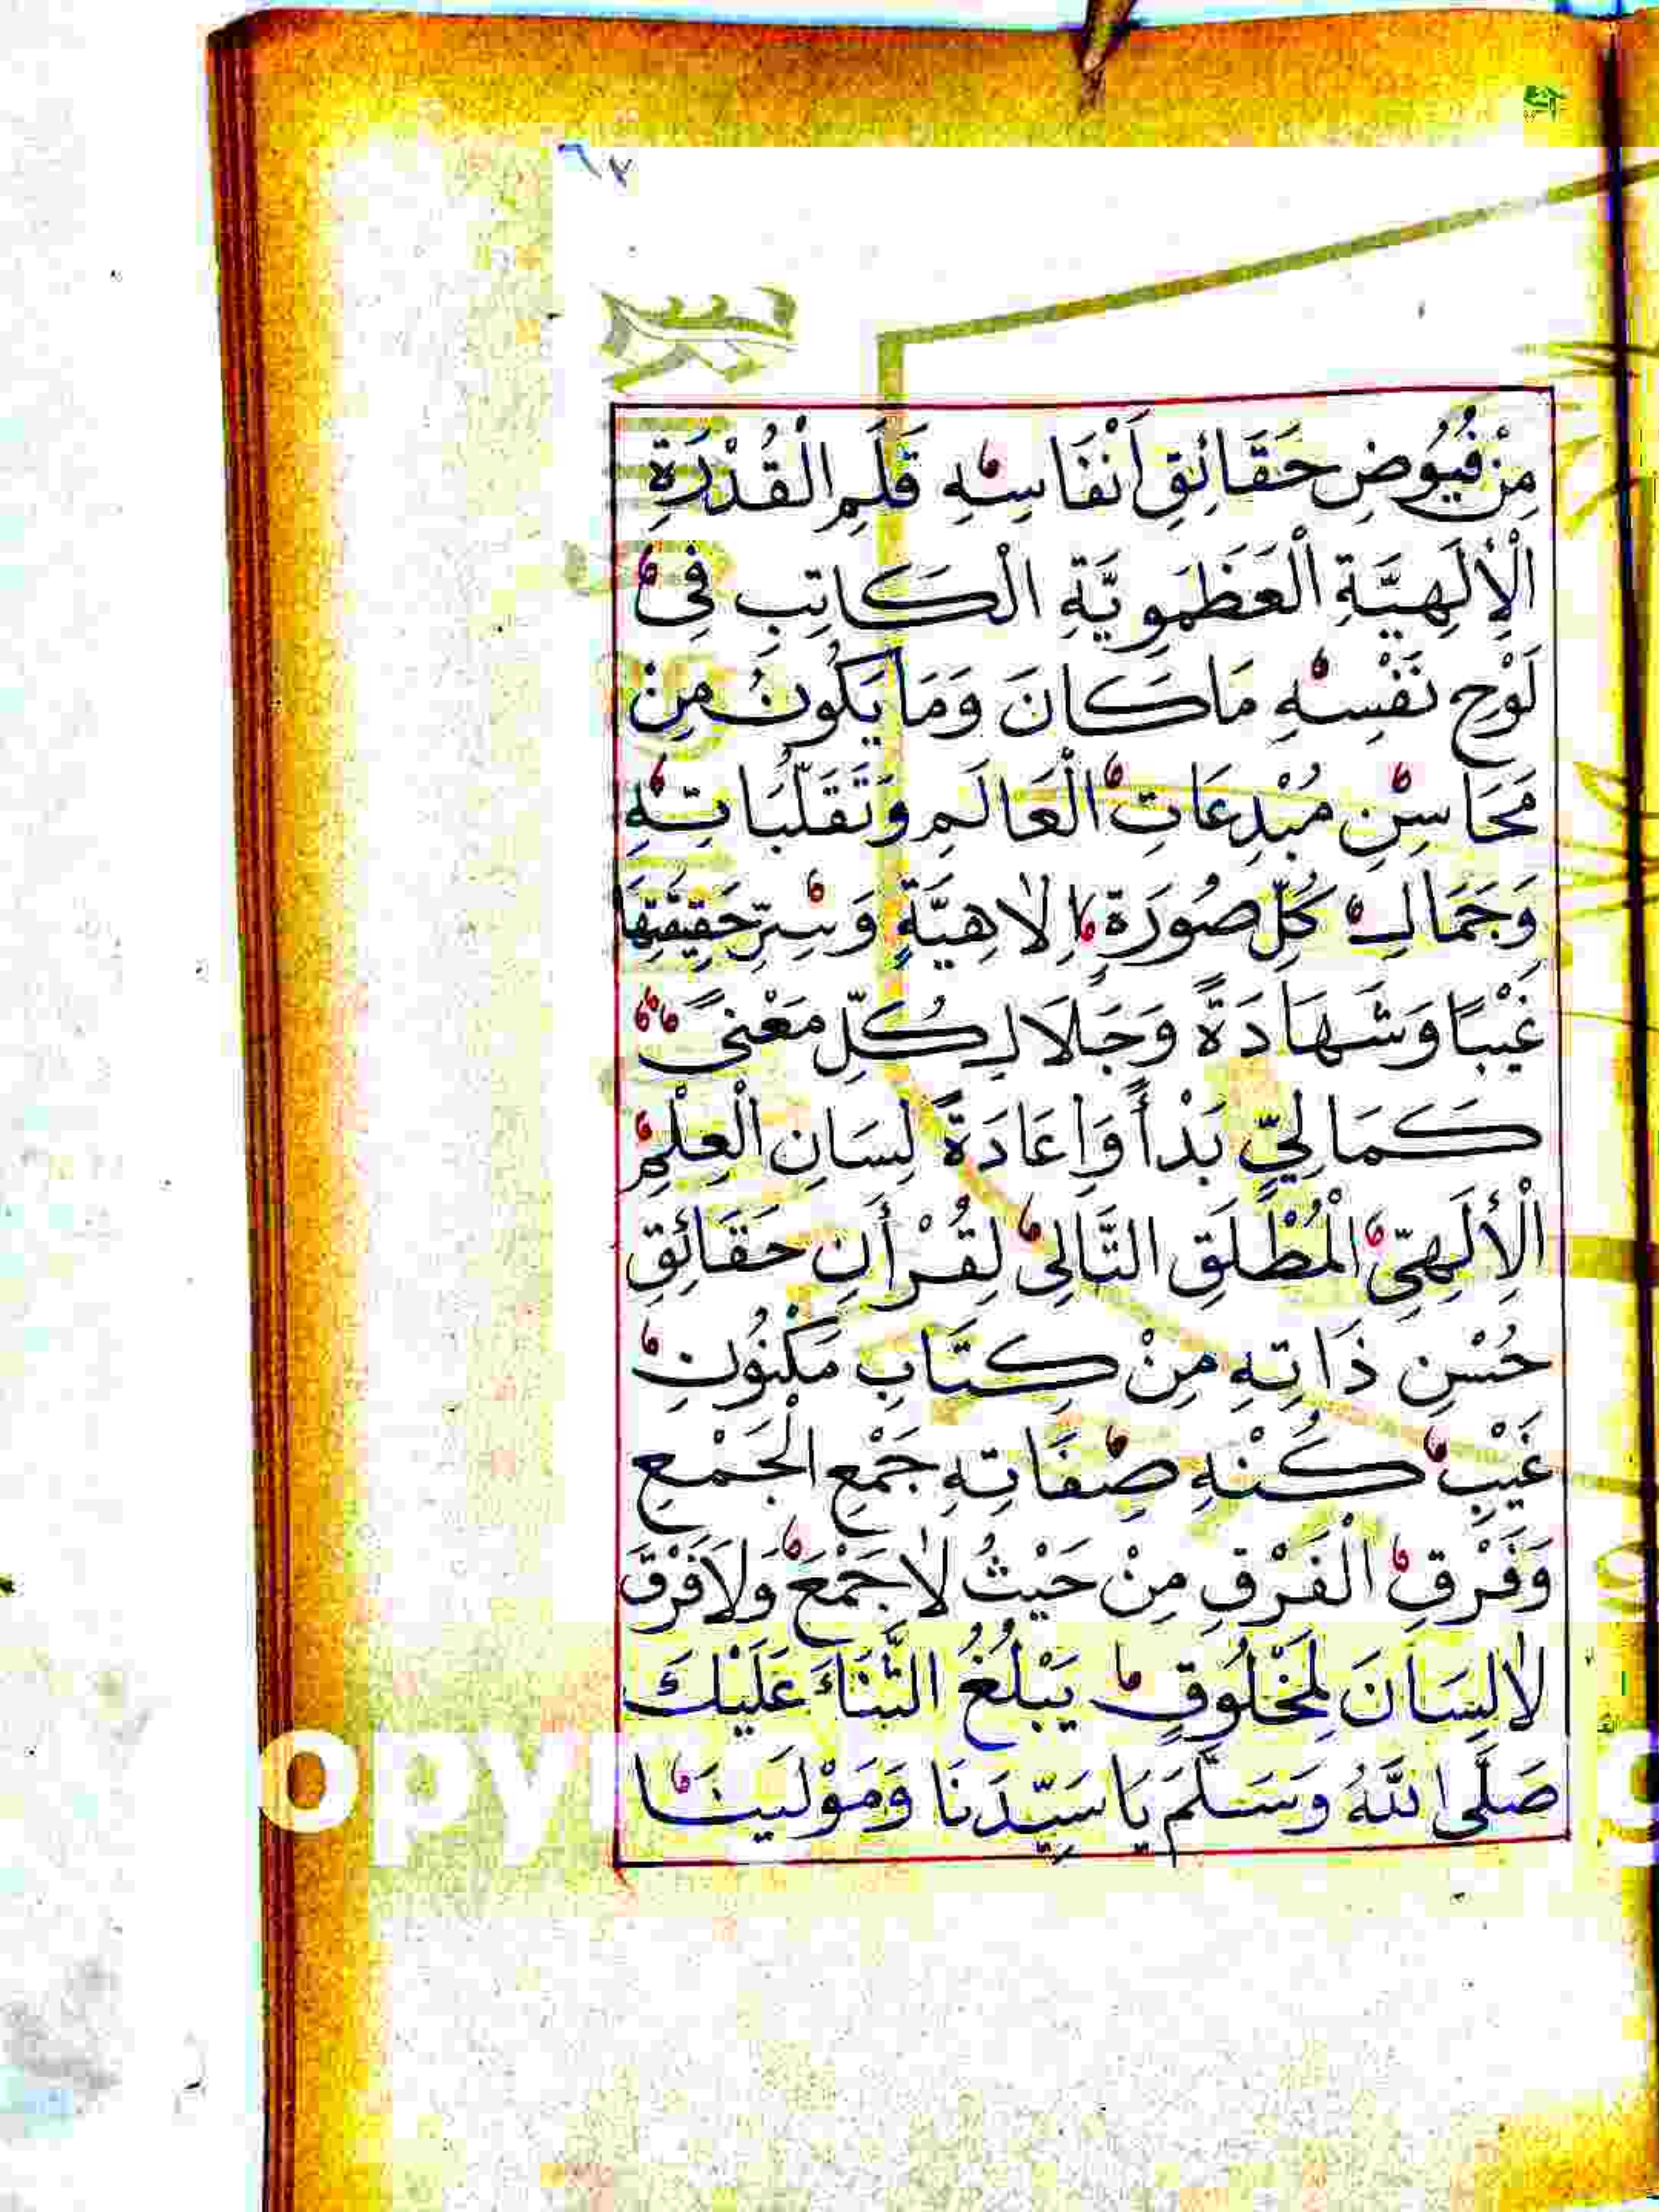 مِنْ فُيُوضِ حَقَائِقِ اَنْفَاسِهِ قَلَمِ الْقُدْرَةِ
الْإِلَهِيَّةِ الْعَظَمُوِيَّةِ الْكَاتِبِ فِى
لَوْحِ نَفْسِهِ مَا كَانَ وَمَا يَكُونُ مِنْ
مَحَاسِنِ مُبْدِعَاتِ الْعَالَمِ وَتَقَلُّبَاتِهِ
وَجَمَالِ كُلِّ صُورَةٍ اِلَاهِيَّةٍ وَسِرِّ حَقِيقَتِهَا
غَيْبًا وَشَهَادَةً وَجَلَالِ كُلِّ مَعْنىً
كَمَالِيٍّ بَدْأً وَإِعَادَةً لِسَانِ الْعِلْمِ
الْإِلَهِيِّ الْمُطْلَقِ التَّالِى لِقُرْأَنِ حَقَائِقِ
حُسْنِ ذَاتِهِ مِنْ كِتَابِ مَكْنُونِ
غَيْبِ كُنْهِ صِفَاتِهِ جَمْعِ الْجَمْعِ
وَفَرْقِ الْفَرْقِ مِنْ حَيْثُ لَا جَمْعَ وَلَا فَرْقَ
لَا لِسَانَ لِمَخْلُوقٍ يَبْلُغُ الثَّنَاءَ عَلَيْكَ
صَلَّى اللّٰهُ وَسَلَّمَ يَا سَيِّدَنَا وَمَوْلَينَا